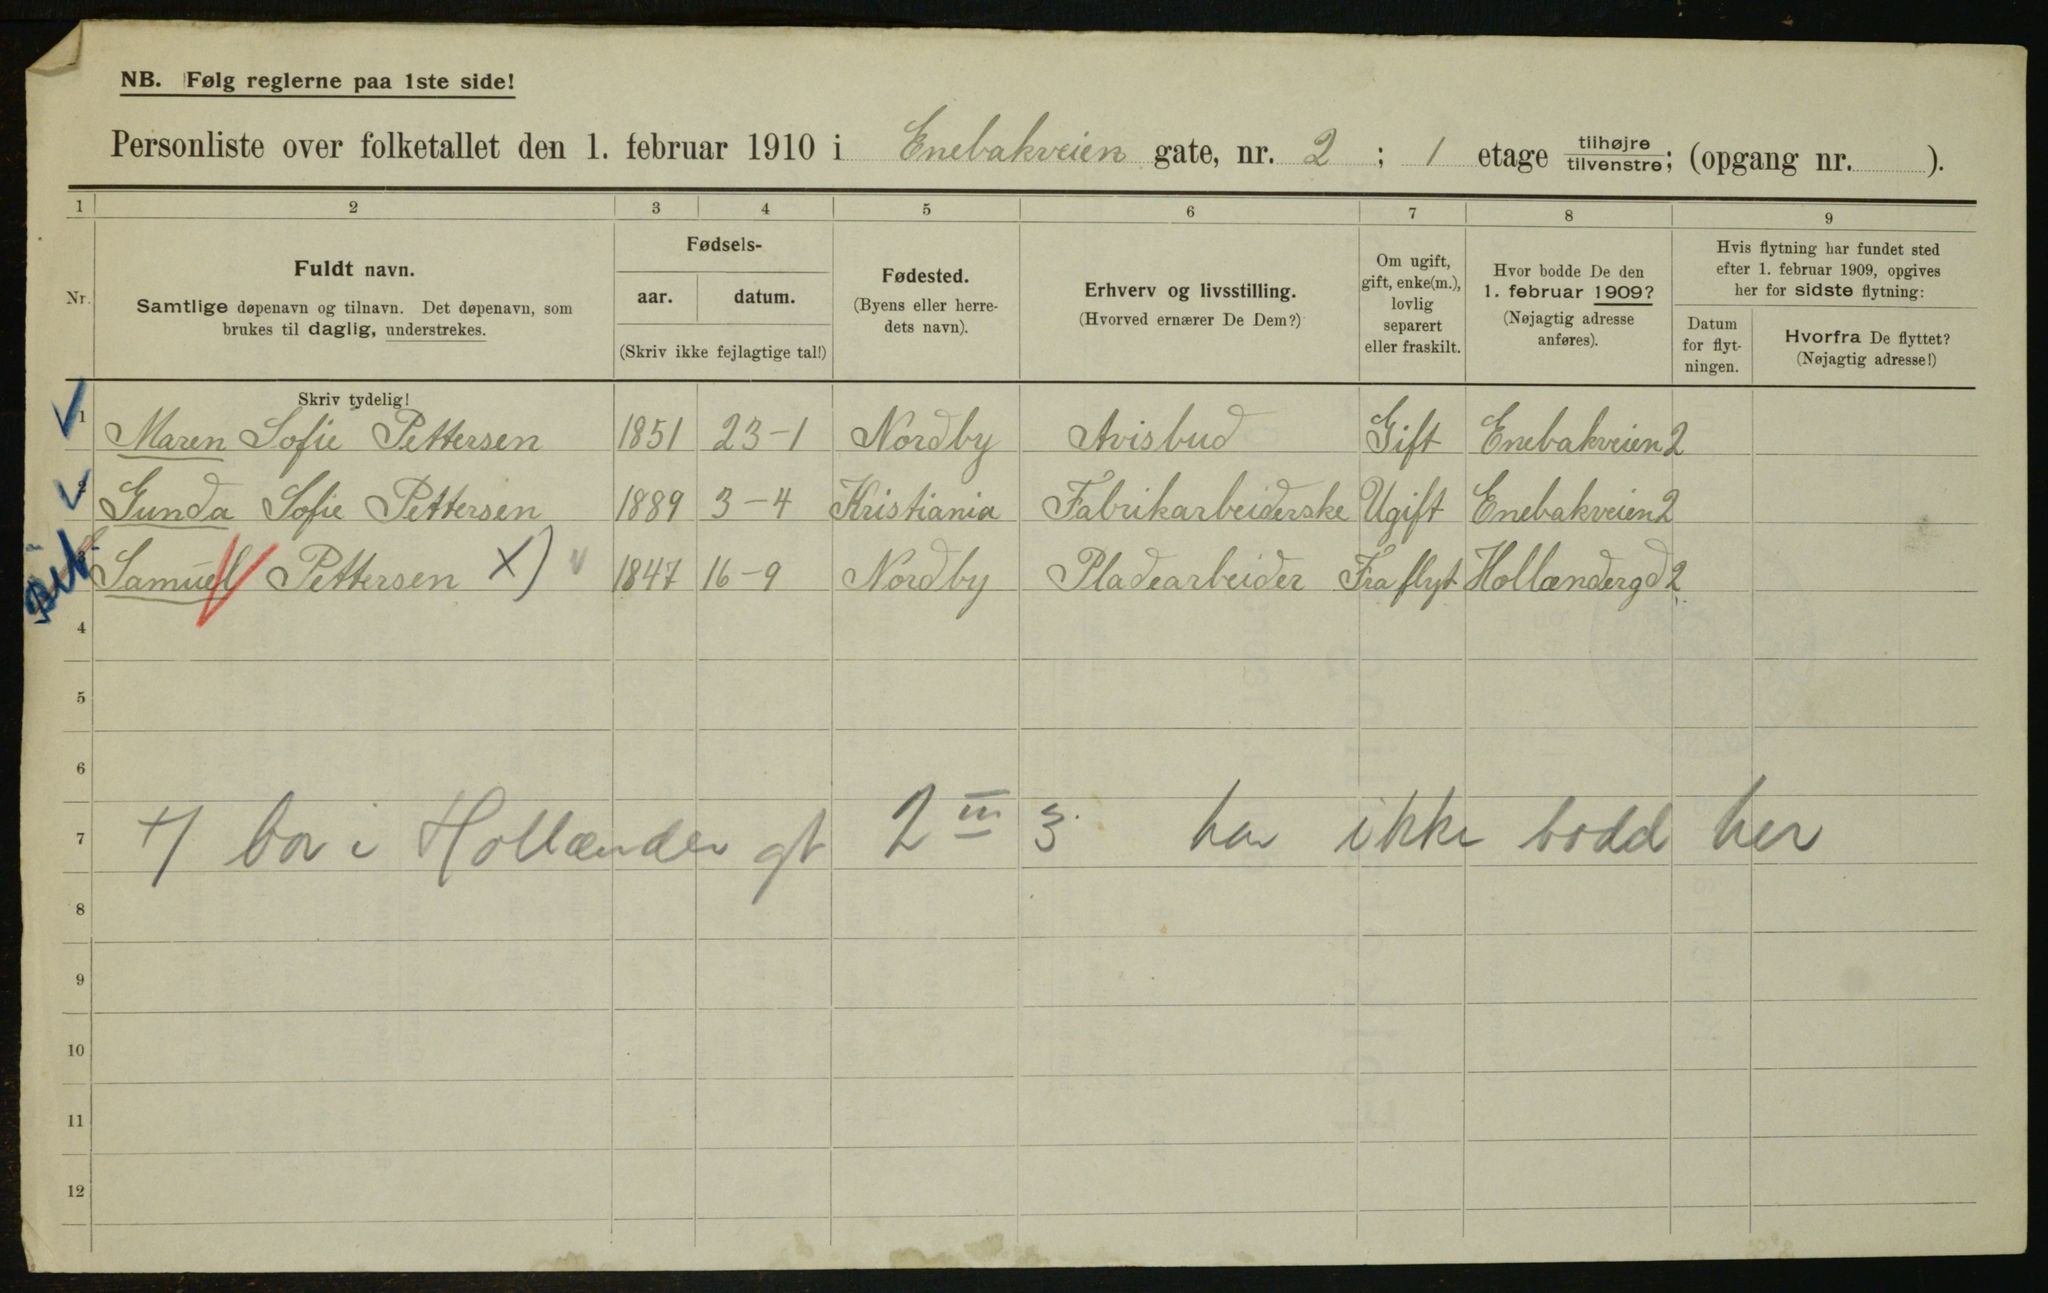 NB. Følg reglerne paa 1ste side!
Personliste over folketallet den 1. februar 1910 i Enebakveien gate, nr. 2 ; 1 etage tilhøjre/tilvenstre; (opgang nr. ).
1 2 3 4 5 6 7 8 9
Nr.
Fuldt navn.
Samtlige døpenavn og tilnavn. Det døpenavn, som
brukes til daglig, understrekes.
Fødsels-
aar. datum.
(Skriv ikke fejlagtige tal!)
Fødested.
(Byens eller herre-
dets navn).
Erhverv og livsstilling.
(Hvorved ernærer De Dem?)
Om ugift,
gift, enke(m.),
lovlig
separert
eller fraskilt.
Hvor bodde De den
1. februar 1909?
(Nøjagtig adresse
anføres).
Hvis flytning har fundet sted
efter 1. februar 1909, opgives
her for sidste flytning:
Datum
for flyt-
ningen.
Hvorfra De flyttet?
(Nøjagtig adresse!)
Skriv tydelig!
1 Maren Sofie Pettersen 1851 23-1 Nordby Avisbud Gift Enebakveien 2
2 Gunda Sofie Pettersen 1889 3-4 Kristiania Fabrikarbeiderske Ugift Enebakveien 2
3 Samuel Pettersen X) 1847 16-9 Nordby Pladearbeider Fraflyt Hollændergd 2
4
5
6
7 +) bor i Hollænder gt 2 III 3. har ikke bodd her
8
9
10
11
12